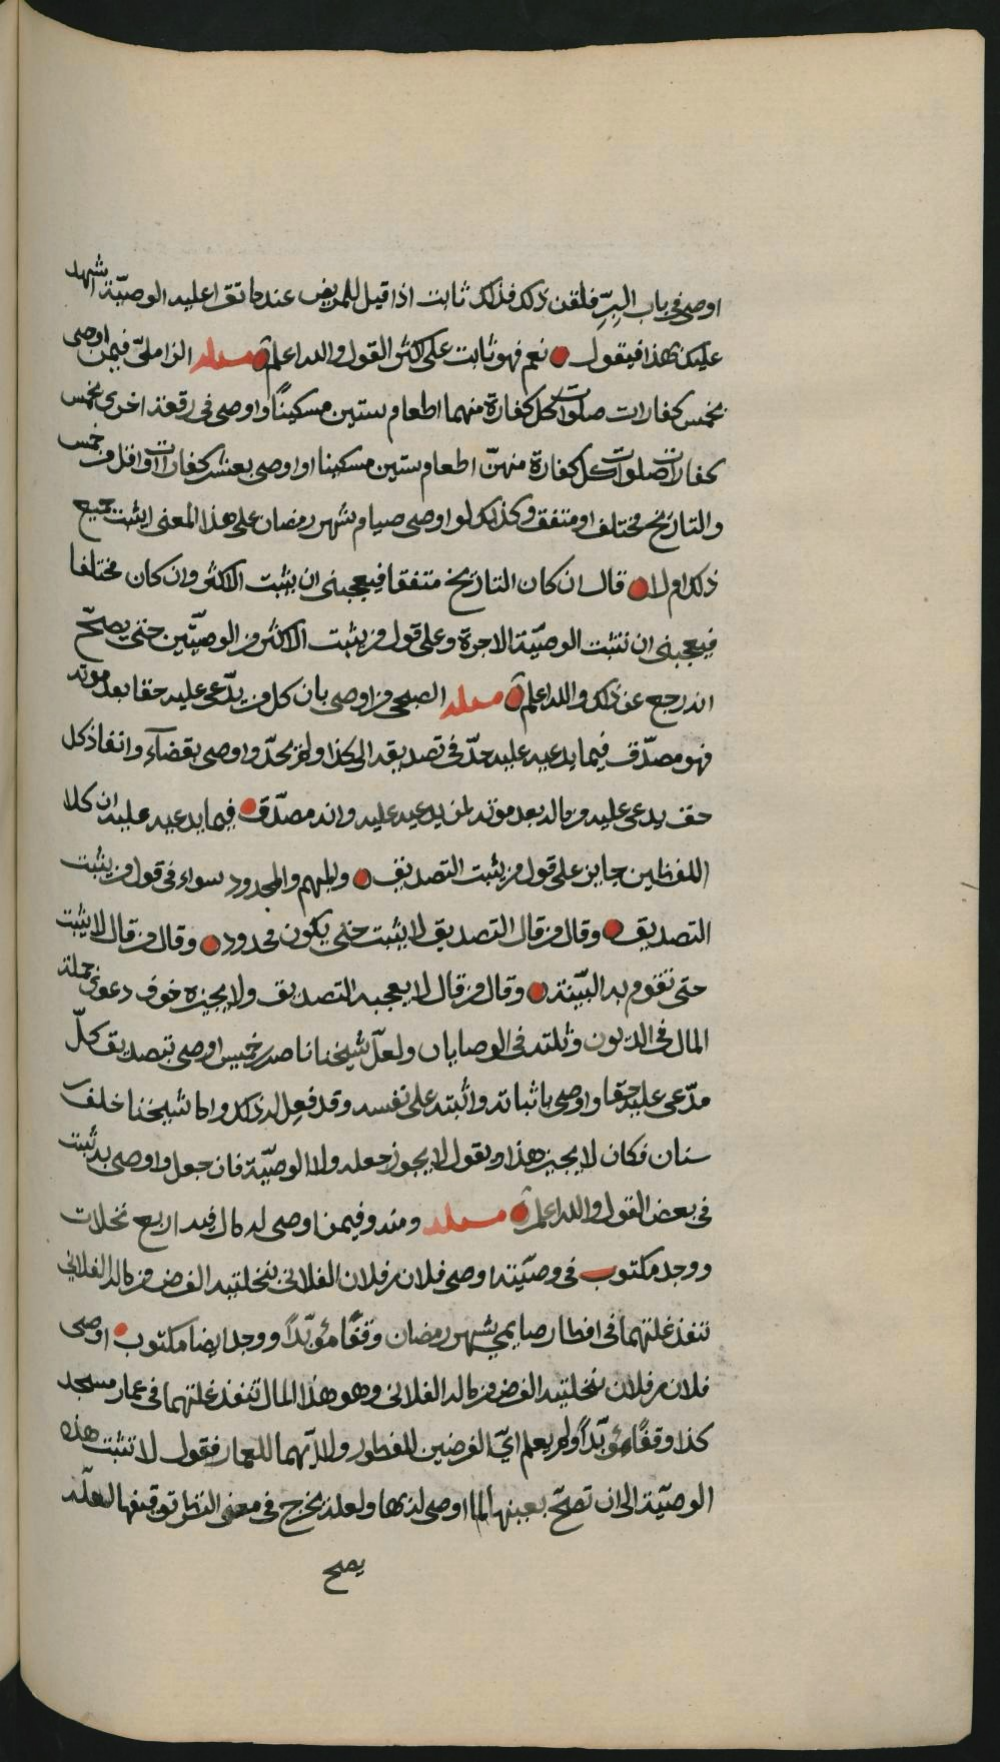 اوصى في باب البِرِّ فلقن ذلك فذلك ثابت اذا قيل للمريض عندما تقرا عليه الوصيّة اشهد
عليك بهذا فيقول نعم فهو ثابت على اكثر القول والله اعلم مسئلة الزاملىّ فيمن اوصى
بخمس كفارات صلوات كل كفارة منهما اطعام ستين مسكينًا واوصى في رقعة اخرى بخمس
كفارات صلوات كل كفارة منهنّ اطعام ستين مسكينا او اوصى بعشر كفارات او اقل من خمس
والتاريخ مختلف او متفق وكذلك لو اوصى صيام شهر رمضان على هذا المعنى ايثبت جميع
ذلك ام لا قال ان كان التاريخ متفقا فيعجبنى ان يثبت الاكثر وان كان مختلفا
فيعجبنى ان تثبت الوصيّة الاخرة وعلى قول من يثبت الاكثر من الوصيّتين حتى يصحّ
انه رجع عن ذلك والله اعلم مسئلة الصبحى من اوصى بان كل من يدّعى عليه حقا بعد موته
فهو مصدّق فيما يدعيه عليه حدّ في تصديقه الى كذا ولم يحدّ واوصى بقضآء وانفاذ كل
حق يدعى عليه من ماله بعد موته لمن يدعيه عليه وانه مصدّق فيما يدعيه عليه ان كلا
اللفظين جايز على قول من يثبت التصديق والمبهم والمحدود سواء في قول من يثبت
التصديق وقال من قال التصديق لا يثبت حتى يكون محدود وقال من قال لا يثبت
حتى تقوم به البيّنة وقال من قال لا يعجبه التصديق ولا يجيزه خوف دعوى جملة
المال في الديون وثلثه في الوصايا ولعلّ شيخنا ناصر بن خميس اوصى بتصديق كلّ
مدّعى عليه حقا واوصى باثباته واثبته على نفسه وقد فعل لذلك واما شيخنا خلف بن
سنان فكان لا يجيز هذا ويقول لا يجوز جعله ولا الوصيّة فان جعل واوصى به ثبت
في بعض القول والله اعلم مسئلة ومنه وفيمن اوصى له مال فيه اربع نخلات
ووجد مكتوب في وصيّته اوصى فلان بن فلان الفلانى بنخلتيه الفرض من ماله الفلانى
تنفذ غلتهما في افطار صايمي شهر رمضان وقفًا مؤبّدًا ووجد ايضا مكتوب اوصى
فلان بن فلان بنخلتيه الفرض من ماله الفلانى وهو هذا المال تنفذ غلتهما في عمار مسجد
كذا وقفًا مؤبّدًا ولم يعلم ايّ الفرضين للفطور ولا ايّهما للعمار فنقول لا تثبت هذه
الوصيّة الى ان تصحّ بعينها لما اوصى له بها ولعله يخرج في معنى النظر توقيفها لعلّه
يصح